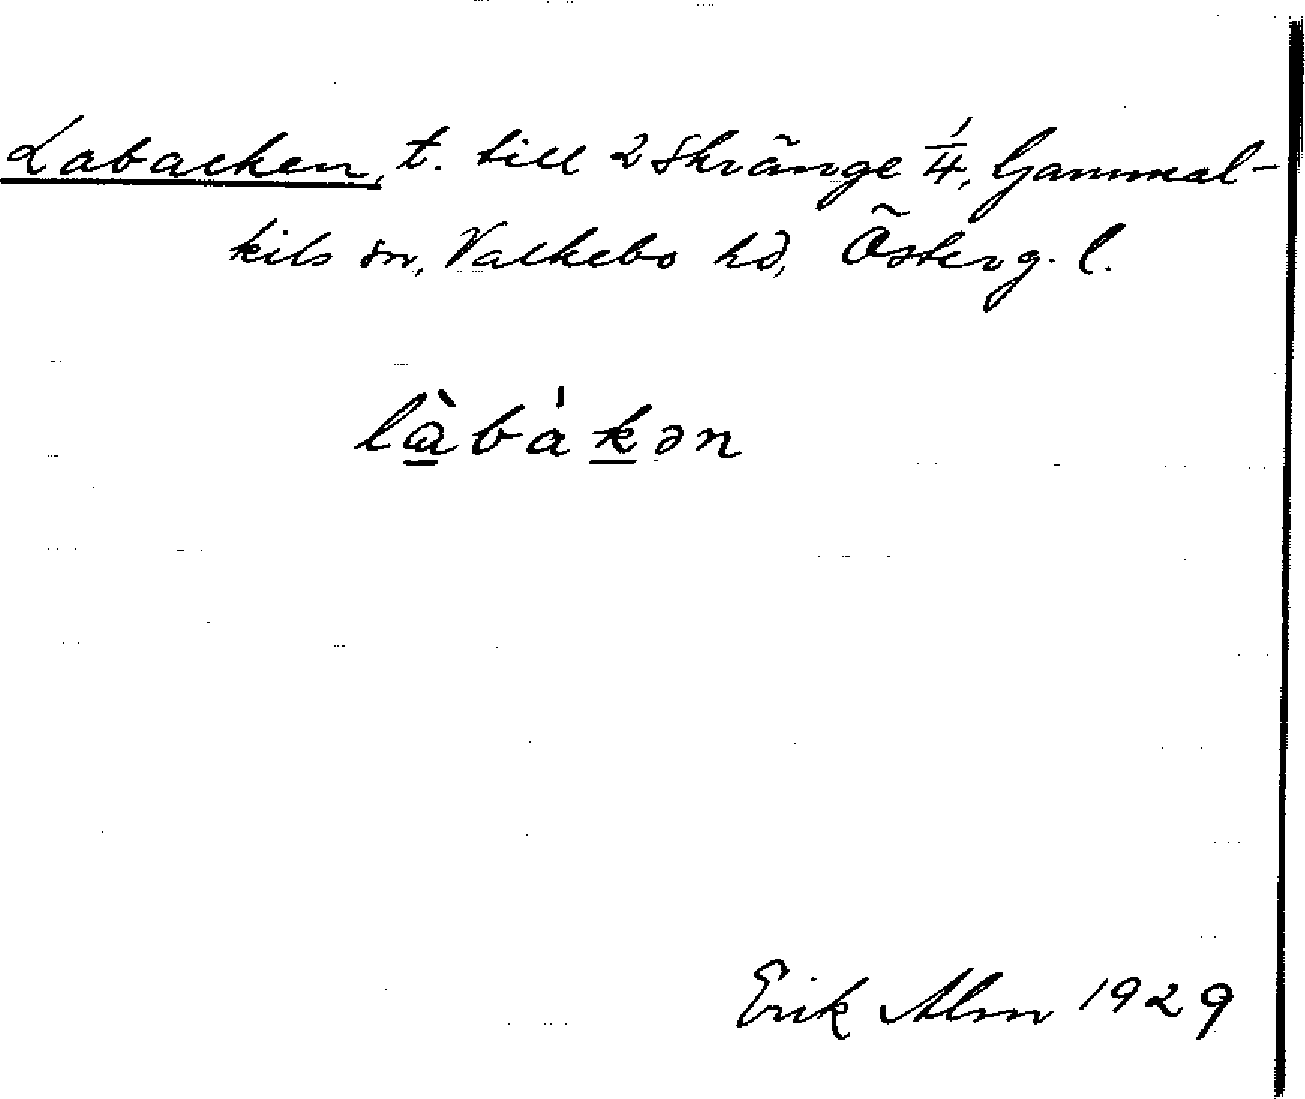 Labacken, t. till 2 Skränge 1/4, Gammal-
kils sn, Valkebo hd, Österg. l.
làbákən
Erik Alm 1929